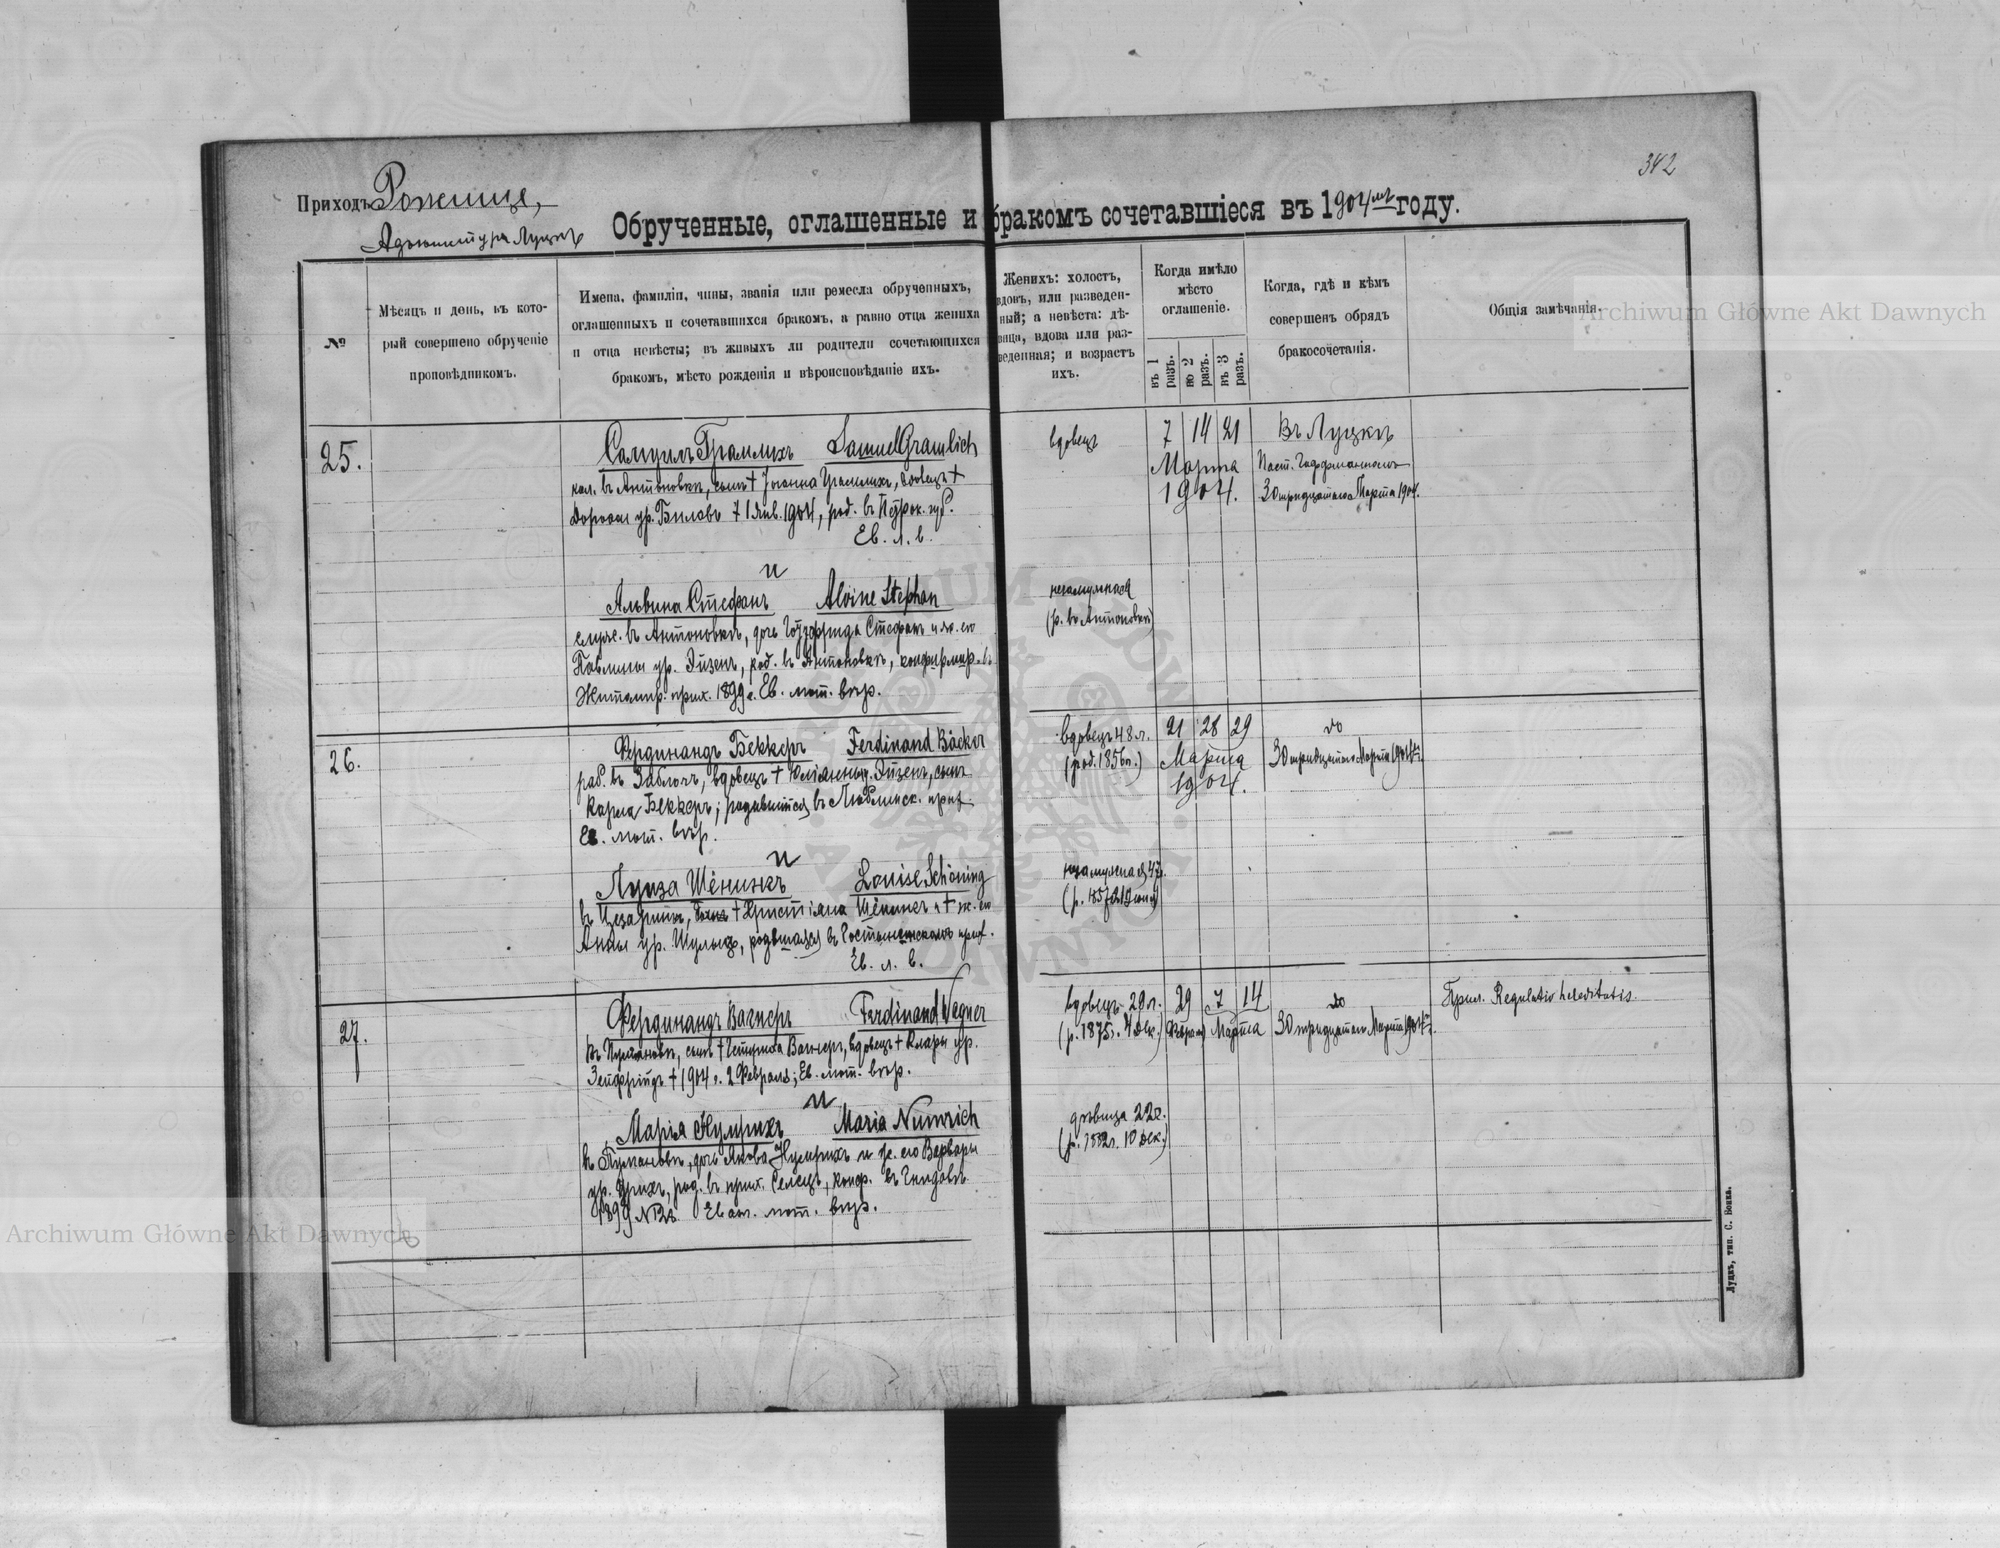 342
Приходъ Рожище,
Адъюнктура Луцкъ
Обрученные, оглашенные и бракомъ сочетавшіеся въ 1904мъ году.
№
Мѣсяцъ и день, въ кото-
рый совершено обрученіе
проповѣдникомъ.
Имена, фамиліи, чины, званія или ремесла обрученныхъ,
оглашенныхъ и сочетавшихся бракомъ, а равно отца жениха
и отца невѣсты; въ живыхъ ли родители сочетающихся
бракомъ, мѣсто рожденія и вѣроисповѣданіе ихъ.
Женихъ: холостъ,
вдовъ, или разведен-
ный; а невѣста: дѣ-
вица, вдова или раз-
веденная; и возрастъ
ихъ.
Когда имѣло
мѣсто
оглашеніе.
въ 1 разъ.
во 2 разъ.
въ 3 разъ.
Когда, гдѣ и кѣмъ
совершенъ обрядъ
бракосочетанія.
Общія замѣчанія.
25.
Самуилъ Грамлихъ Samuel Gramlich
кол. въ Антоновкѣ, сынъ † Іоанна Грамлихъ, вдовецъ †
ур. Билавъ 7 Янв. 1904, род. въ губ.
Ев. л. в.
и
Альвина Стефанъ Alvine Stephan
въ Антоновкѣ, дочь Готфрида Стефанъ и ж. его
Павлины ур. Эйзенъ, род. въ Антоновкѣ, конфирмир. въ
Житомир. прих. 1899 г. Ев. лют. вѣр.
вдовецъ
7 14 21
Марта
1904.
Въ Луцкѣ
Паст.
30 тридцатаго Марта 1904.
незамужняя
(р. въ Антоновкѣ)
26.
Фердинандъ Беккеръ Ferdinand Bäcker
раб. въ Заболоч., вдовецъ † Юліанны ур. Эйзенъ, сынъ
Карла Беккеръ; родившійся въ Люблинск. прих.
Ев. лют. вѣр.
и
Луиза Шёнинкъ Louise Schöning
въ Цезаринѣ, † Христіана Шёнинкъ и † ж. его
Анны ур. Шульцъ, родившаяся въ Гостынинскомъ прих.
Ев. л. в.
вдовецъ 48 л.
(род. 1856 г.)
21 28 29
Марта
1904.
do
30 тридцатаго Марта 1904 г.
незамужняя 47 л.
(р. 1857 г. 19 іюня)
27.
Фердинандъ Вагнеръ Ferdinand Wegner
въ, сынъ † Вагнеръ, вдовецъ † Клары ур.
Зейфридъ † 1904 г. 2 Февраля; Ев. лют. вѣр.
и
Марія Нумрихъ Maria Numrich
въ, дочь Якова Нумрихъ и ж. его Варвары
ур., род. въ прих. Селецъ, конф. въ
1899 Еван. лют. вѣр.
вдовецъ 29 л.
(р. 1875 г. 4 Дек.)
29 7 14
Феврал. Марта
do
30 тридцатаго Марта 1904 г.
Прил. Regulatio hereditatis.
дѣвица 22 л.
(р. 1882 г. 10 Дек.)
Луцкъ, тип. С. Бонка.
Archiwum Główne Akt Dawnych
Archiwum Główne Akt Dawnych